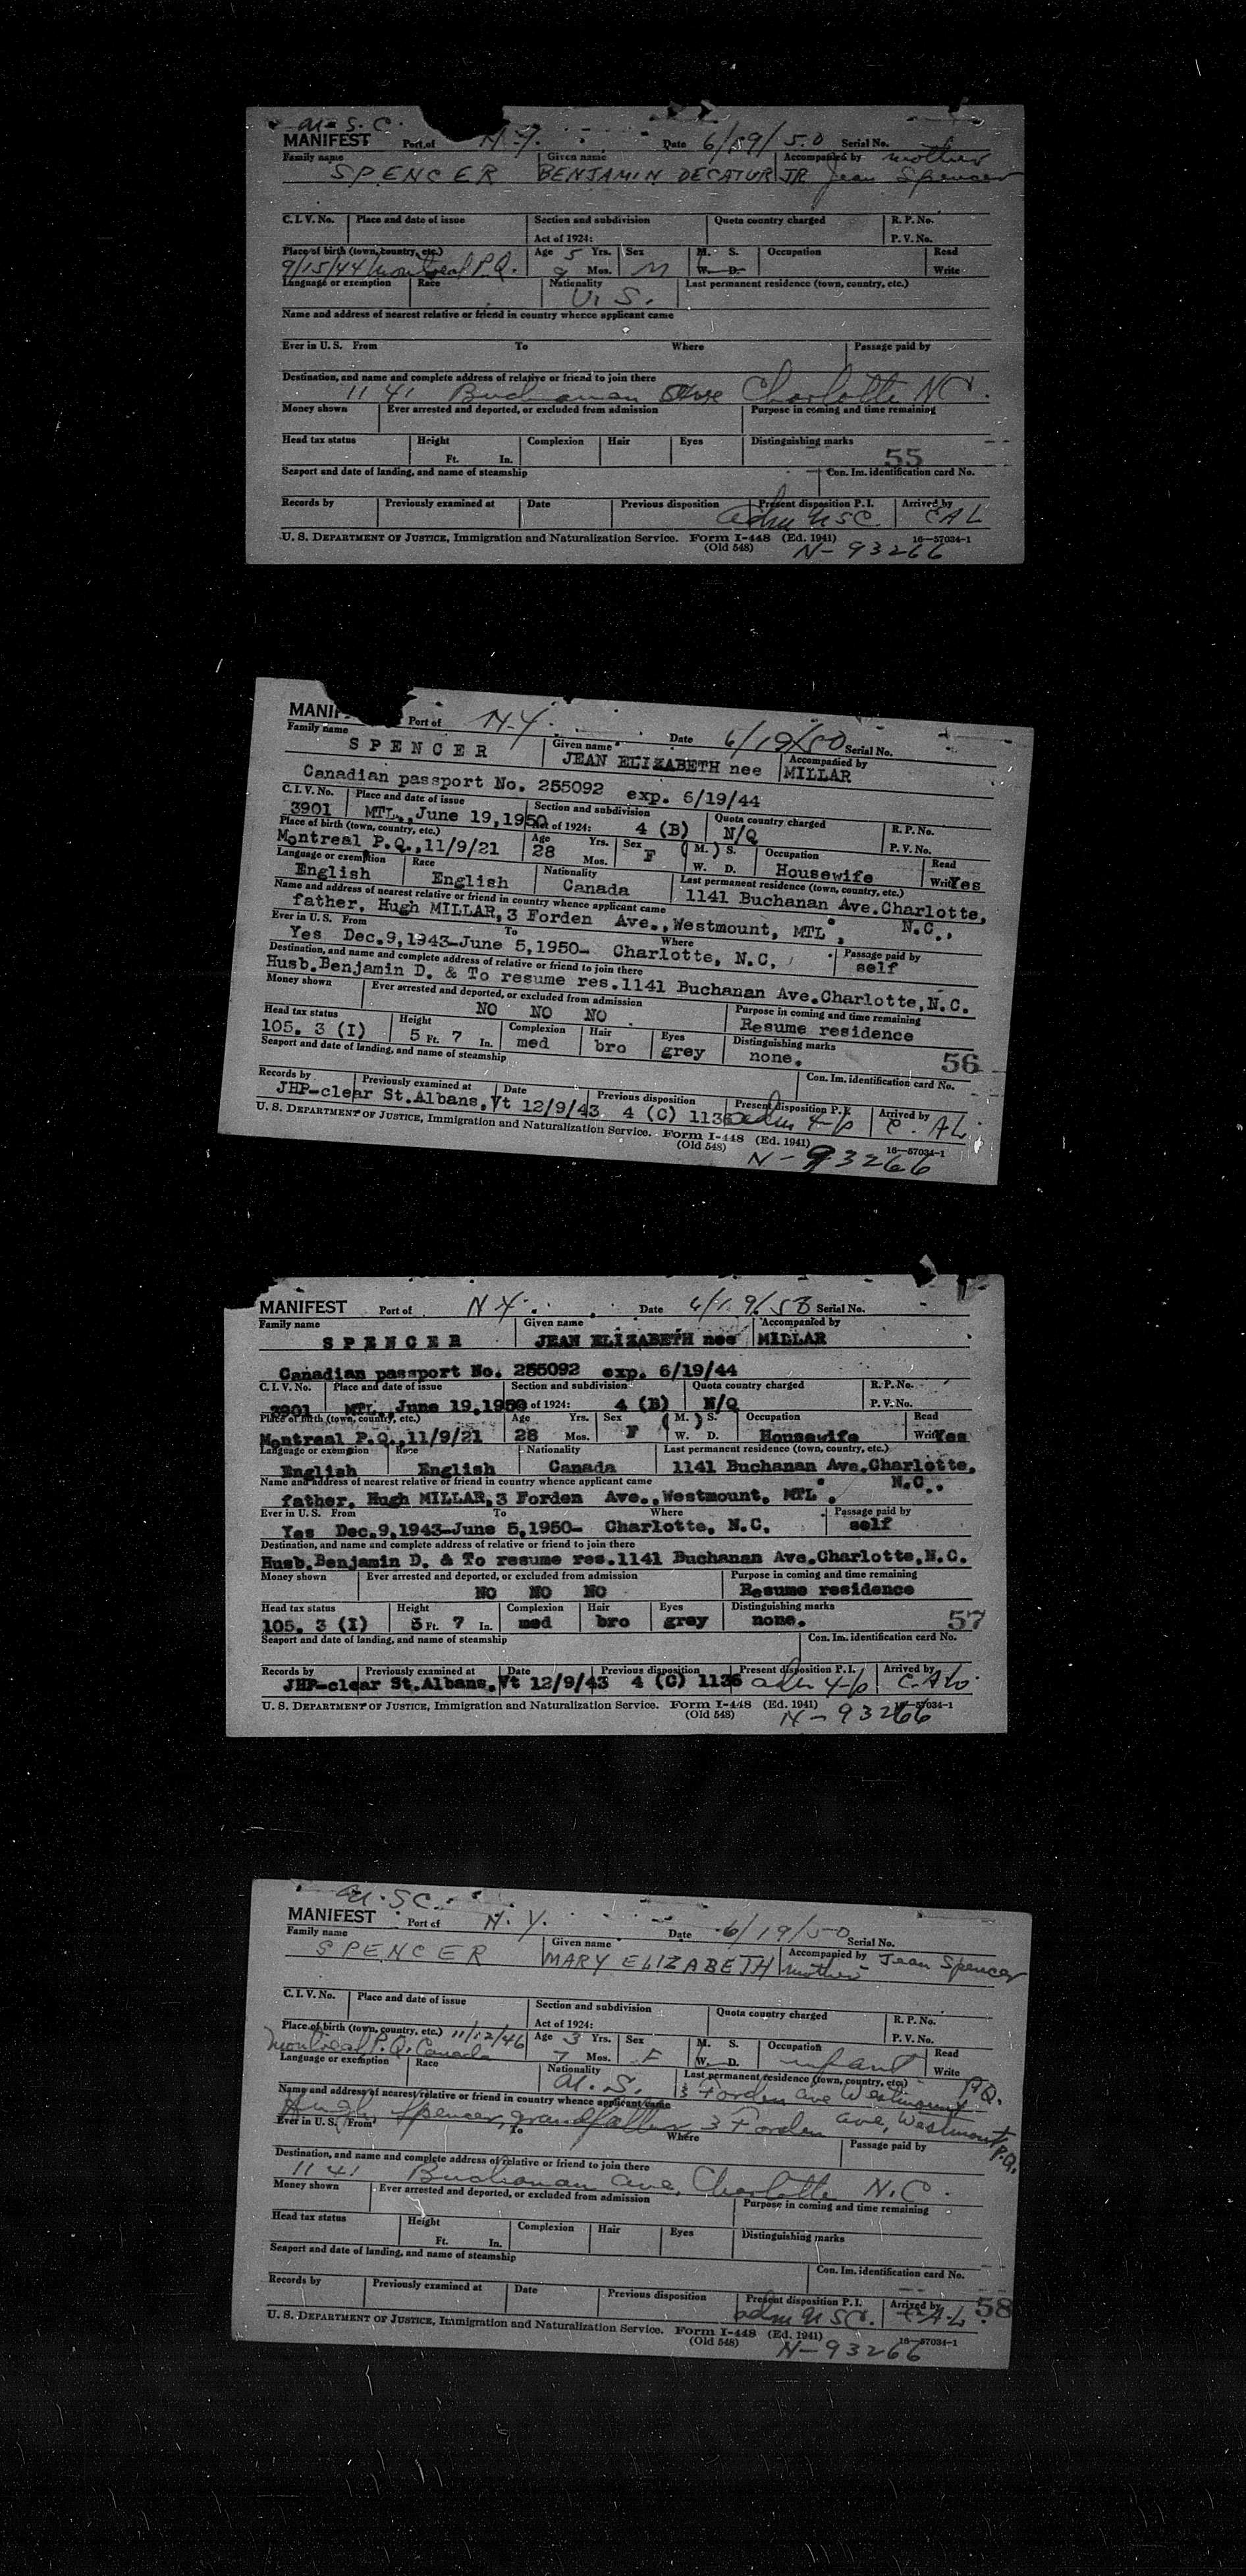 U.S.C.
MANIFEST Port of N.Y. Date 6/19/50 Serial No.
Family name Given name Accompanied by mother
SPENCER BENJAMIN DECATUR JR Jean Spencer
C. I. V. No. Place and date of issue Section and subdivision Quota country charged R. P. No.
Act of 1924: P. V. No.
Place of birth (town, country, etc.) Age 5 Yrs. Sex M. S. Occupation Read
9/15/44 Montreal P.Q. 9 Mos. M W. D. Write
Language or exemption Race Nationality Last permanent residence (town, country, etc.)
U. S.
Name and address of nearest relative or friend in country whence applicant came
Ever in U. S. From To Where Passage paid by
Destination, and name and complete address of relative or friend to join there
1141 Buchanan Charlotte NC.
Money shown Ever arrested and deported, or excluded from admission Purpose in coming and time remaining
Head tax status Height Complexion Hair Eyes Distinguishing marks
Ft. In. 55
Seaport and date of landing, and name of steamship Con. Im. identification card No.
Records by Previously examined at Date Previous disposition Present disposition P. I. Arrived by
adm USC. CAL
U. S. DEPARTMENT OF JUSTICE, Immigration and Naturalization Service. Form I-448 (Ed. 1941) 16—57034-1
(Old 548) N-93266
MANIF Port of N.Y. Date 6/19/50 Serial No.
Family name Given name Accompanied by
SPENCER JEAN ELIZABETH nee MILLAR
Canadian passport No. 255092 exp. 6/19/44
C. I. V. No. Place and date of issue Section and subdivision Quota country charged R. P. No.
3901 MTL., June 19,1950 Act of 1924: 4 (B) N/Q P. V. No.
Place of birth (town, country, etc.) Age Yrs. Sex (M.) S. Occupation Read
Montreal P.Q.,11/9/21 28 Mos. F W. D. Housewife Write Yes
Language or exemption Race Nationality Last permanent residence (town, country, etc.)
English English Canada 1141 Buchanan Ave.Charlotte,
Name and address of nearest relative or friend in country whence applicant came N.C.,
father. Hugh MILLAR,3 Forden Ave.,Westmount, MTL.
Ever in U. S. From To Where Passage paid by
Yes Dec.9,1943-June 5,1950- Charlotte, N.C. self
Destination, and name and complete address of relative or friend to join there
Husb.Benjamin D. & To resume res.1141 Buchanan Ave.Charlotte,N.C.
Money shown Ever arrested and deported, or excluded from admission Purpose in coming and time remaining
NO NO NO Resume residence
Head tax status Height Complexion Hair Eyes Distinguishing marks
105. 3 (I) 5 Ft. 7 In. med bro grey none. 56
Seaport and date of landing, and name of steamship Con. Im. identification card No.
Records by Previously examined at Date Previous disposition Present disposition P. I. Arrived by
JHP-clear St.Albans,Vt 12/9/43 4 (C) 1136 adm 4-b C. AL.
U. S. DEPARTMENT OF JUSTICE, Immigration and Naturalization Service. Form I-448 (Ed. 1941) 16—57034-1
(Old 548) N-93266
MANIFEST Port of N.Y. Date 6/19/50 Serial No.
Family name Given name Accompanied by
SPENCER JEAN ELIZABETH nee MILLAR
Canadian passport No. 255092 exp. 6/19/44
C. I. V. No. Place and date of issue Section and subdivision Quota country charged R. P. No.
3901 MTL., June 19,1950 of 1924: 4 (B) N/Q P. V. No.
Place of birth (town, country, etc.) Age Yrs. Sex (M.) S. Occupation Read
Montreal P.Q.,11/9/21 28 Mos. F W. D. Housewife Write Yes
Language or exemption Race Nationality Last permanent residence (town, country, etc.)
English English Canada 1141 Buchanan Ave.Charlotte,
Name and address of nearest relative or friend in country whence applicant came N.C.,
father. Hugh MILLAR,3 Forden Ave.,Westmount, MTL.
Ever in U. S. From To Where Passage paid by
Yes Dec.9,1943-June 5,1950- Charlotte, N.C. self
Destination, and name and complete address of relative or friend to join there
Husb.Benjamin D. & To resume res.1141 Buchanan Ave.Charlotte,N.C.
Money shown Ever arrested and deported, or excluded from admission Purpose in coming and time remaining
NO NO NO Resume residence
Head tax status Height Complexion Hair Eyes Distinguishing marks
105. 3 (I) 5 Ft. 7 In. med bro grey none. 57
Seaport and date of landing, and name of steamship Con. Im. identification card No.
Records by Previously examined at Date Previous disposition Present disposition P. I. Arrived by
JHP-clear St.Albans,Vt 12/9/43 4 (C) 1136 adm 4-b C.AL.
U. S. DEPARTMENT OF JUSTICE, Immigration and Naturalization Service. Form I-448 (Ed. 1941) 16—57034-1
(Old 548) N-93266
U.S.C.
MANIFEST Port of N.Y. Date 6/19/50 Serial No.
Family name Given name Accompanied by Jean Spencer
SPENCER MARY ELIZABETH mother
C. I. V. No. Place and date of issue Section and subdivision Quota country charged R. P. No.
Act of 1924: P. V. No.
Place of birth (town, country, etc.) 11/12/46 Age 3 Yrs. Sex M. S. Occupation Read
Montreal P.Q. Canada 7 Mos. F W. D. infant Write
Language or exemption Race Nationality Last permanent residence (town, country, etc.) P.Q.
U. S. 3 Forden Ave Westmount
Name and address of nearest relative or friend in country whence applicant came
Hugh Spencer, grandfather, 3 Forden ave, Westmount P.Q.
Ever in U. S. From To Where Passage paid by
Destination, and name and complete address of relative or friend to join there
1141 Buchanan ave, Charlotte N.C.
Money shown Ever arrested and deported, or excluded from admission Purpose in coming and time remaining
Head tax status Height Complexion Hair Eyes Distinguishing marks
Ft. In.
Seaport and date of landing, and name of steamship Con. Im. identification card No.
Records by Previously examined at Date Previous disposition Present disposition P. I. Arrived by 58
adm USC. C-A-L.
U. S. DEPARTMENT OF JUSTICE, Immigration and Naturalization Service. Form I-448 (Ed. 1941) 16—57034-1
(Old 548) N-93266